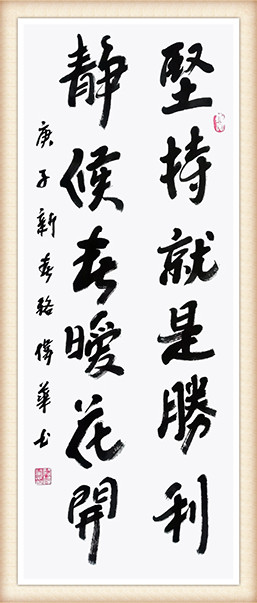 堅持就是勝利
靜候春暖花開
庚子新春駱偉華书